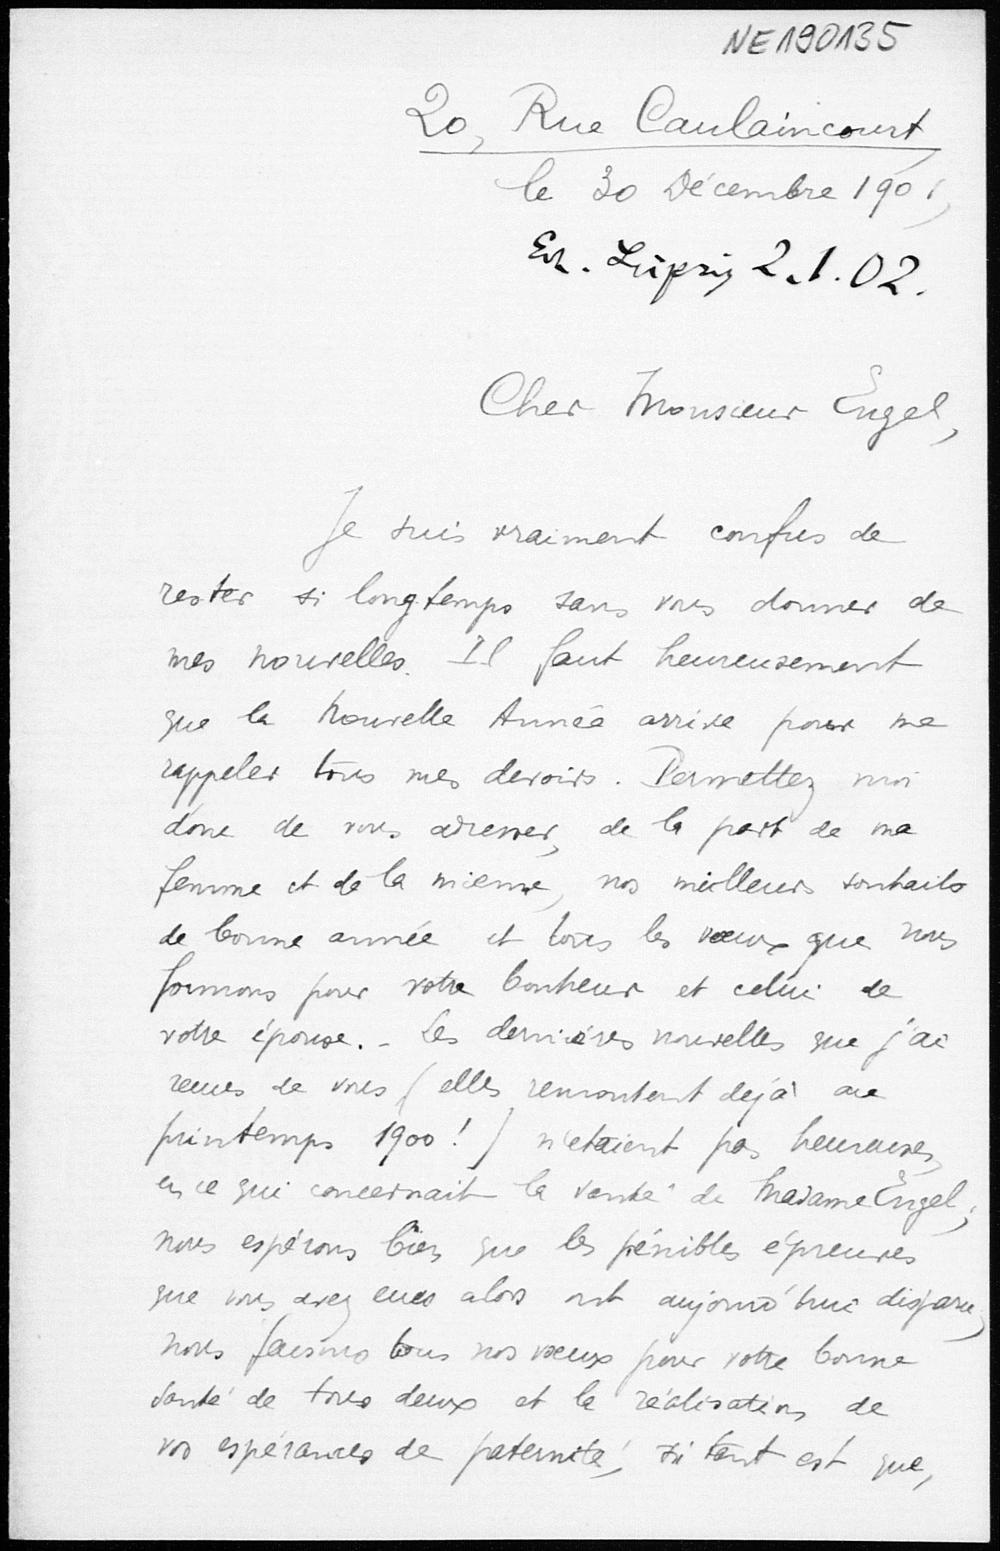 NE190135
20, Rue Caulaincourt
le 30 Décembre 1901,
Leipzig 2.1.02.
Cher Monsieur Engel,
Je suis vraiment confus de
rester si longtemps sans vous donner de
mes nouvelles. Il faut heureusement
que la Nouvelle Année arrive pour me
rappeler tous mes devoirs. Permettez moi
donc de vous adresser, de la part de ma
femme et de la mienne, nos meilleurs souhaits
de bonne année et tous les vœux que nous
formons pour votre bonheur et celui de
votre épouse. - Les dernières nouvelles que j'ai
reçues de vous (elles remontent déjà au
printemps 1900!) n'étaient pas heureuses,
en ce qui concernait la santé de Madame Engel;
nous espérons bien que les pénibles épreuves
que vous avez eues alors ont aujourd'hui disparu,
nous faisons tous nos vœux pour votre bonne
santé de tous deux et la réalisation de
vos espérances de paternité, si tant est que,